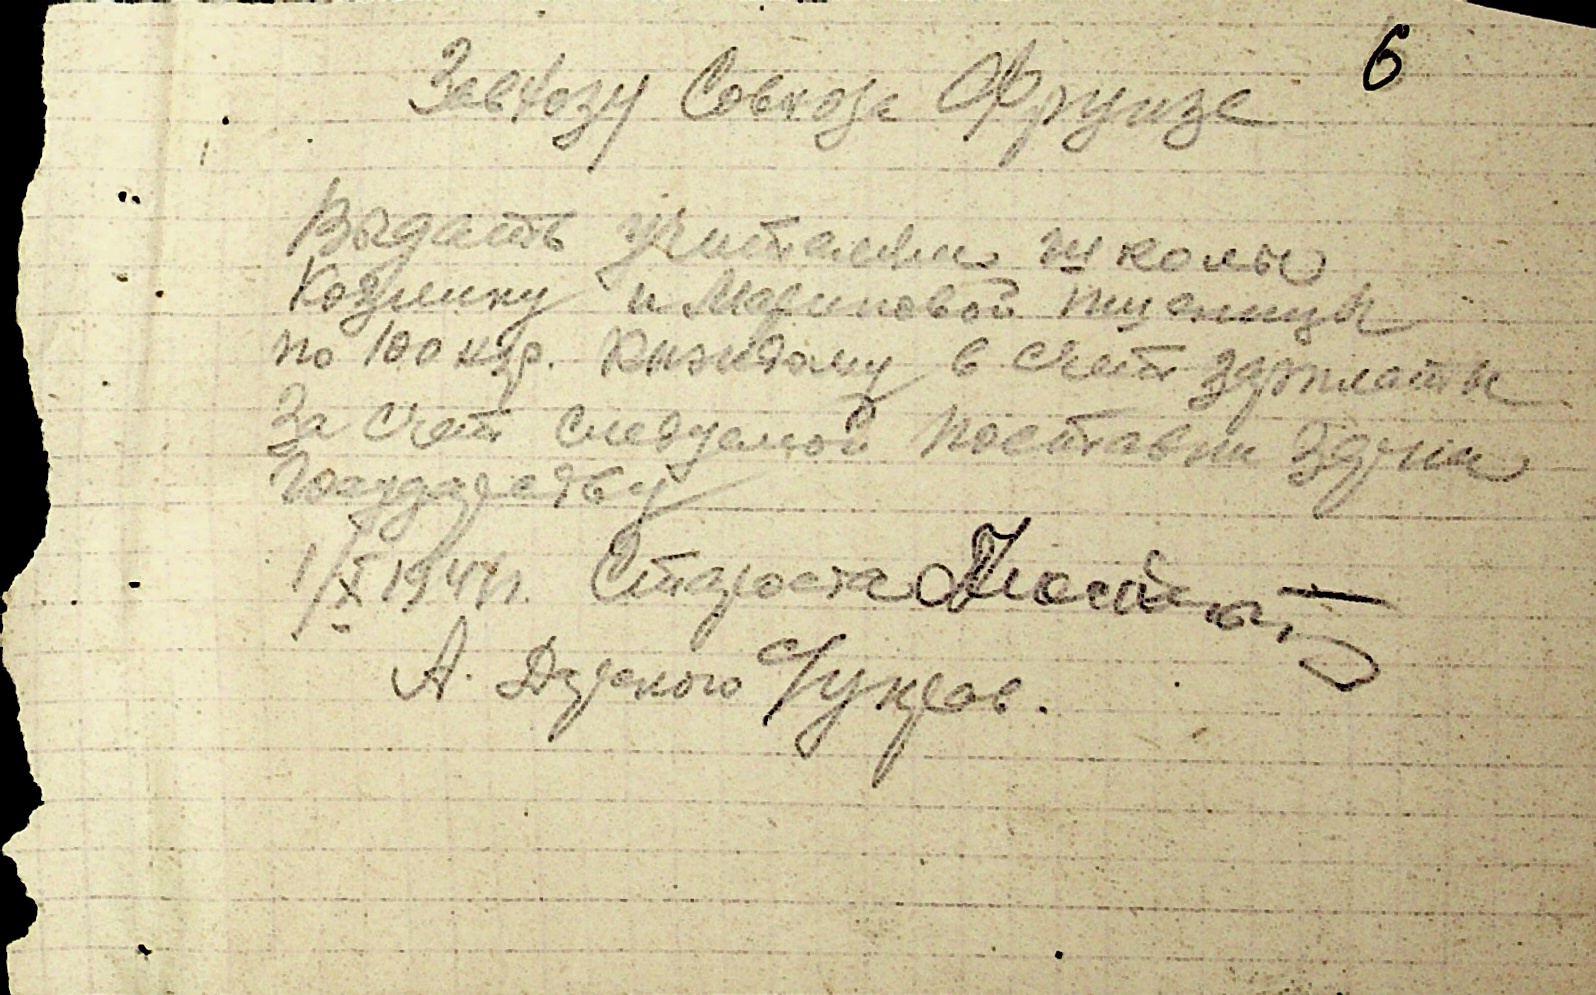 6
Завхозу Совхоза Фрунзе
Выдать учителям школы
Козлику и Мариновой пшеницы
по 100 кгр. каждому в счет зарплаты
За счет следуемой поставки зерна
Государству
1/X 1941г. Староста
А.